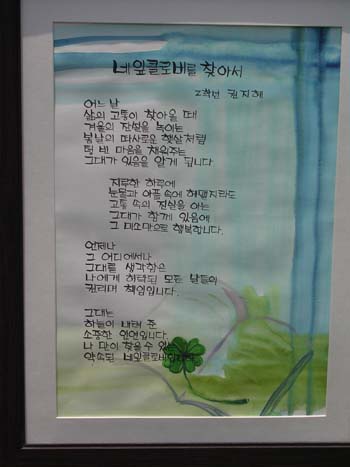 네잎클로버를 찾아서
2학년 권지혜
어느 날
삶의 고통이 찾아올 때
겨울의 잔설을 녹이는
봄날의 따사로운 햇살처럼
텅 빈 마음을 채워주는
그대가 있음을 알게 됩니다
지루한 하루에
눈물과 아픔 속에 헤맬지라도
고통 속의 진실을 아는
그대가 함께 있음에
그 미소만으로 행복합니다.
언제나
그 어디에서나
그대를 생각함은
나에게 허락된 모든 날들의
권리며 책임입니다.
그대는
하늘이 내려 준
소중한 인연입니다.
나 만이 찾을 수 있
약속된 네잎클로버입니다